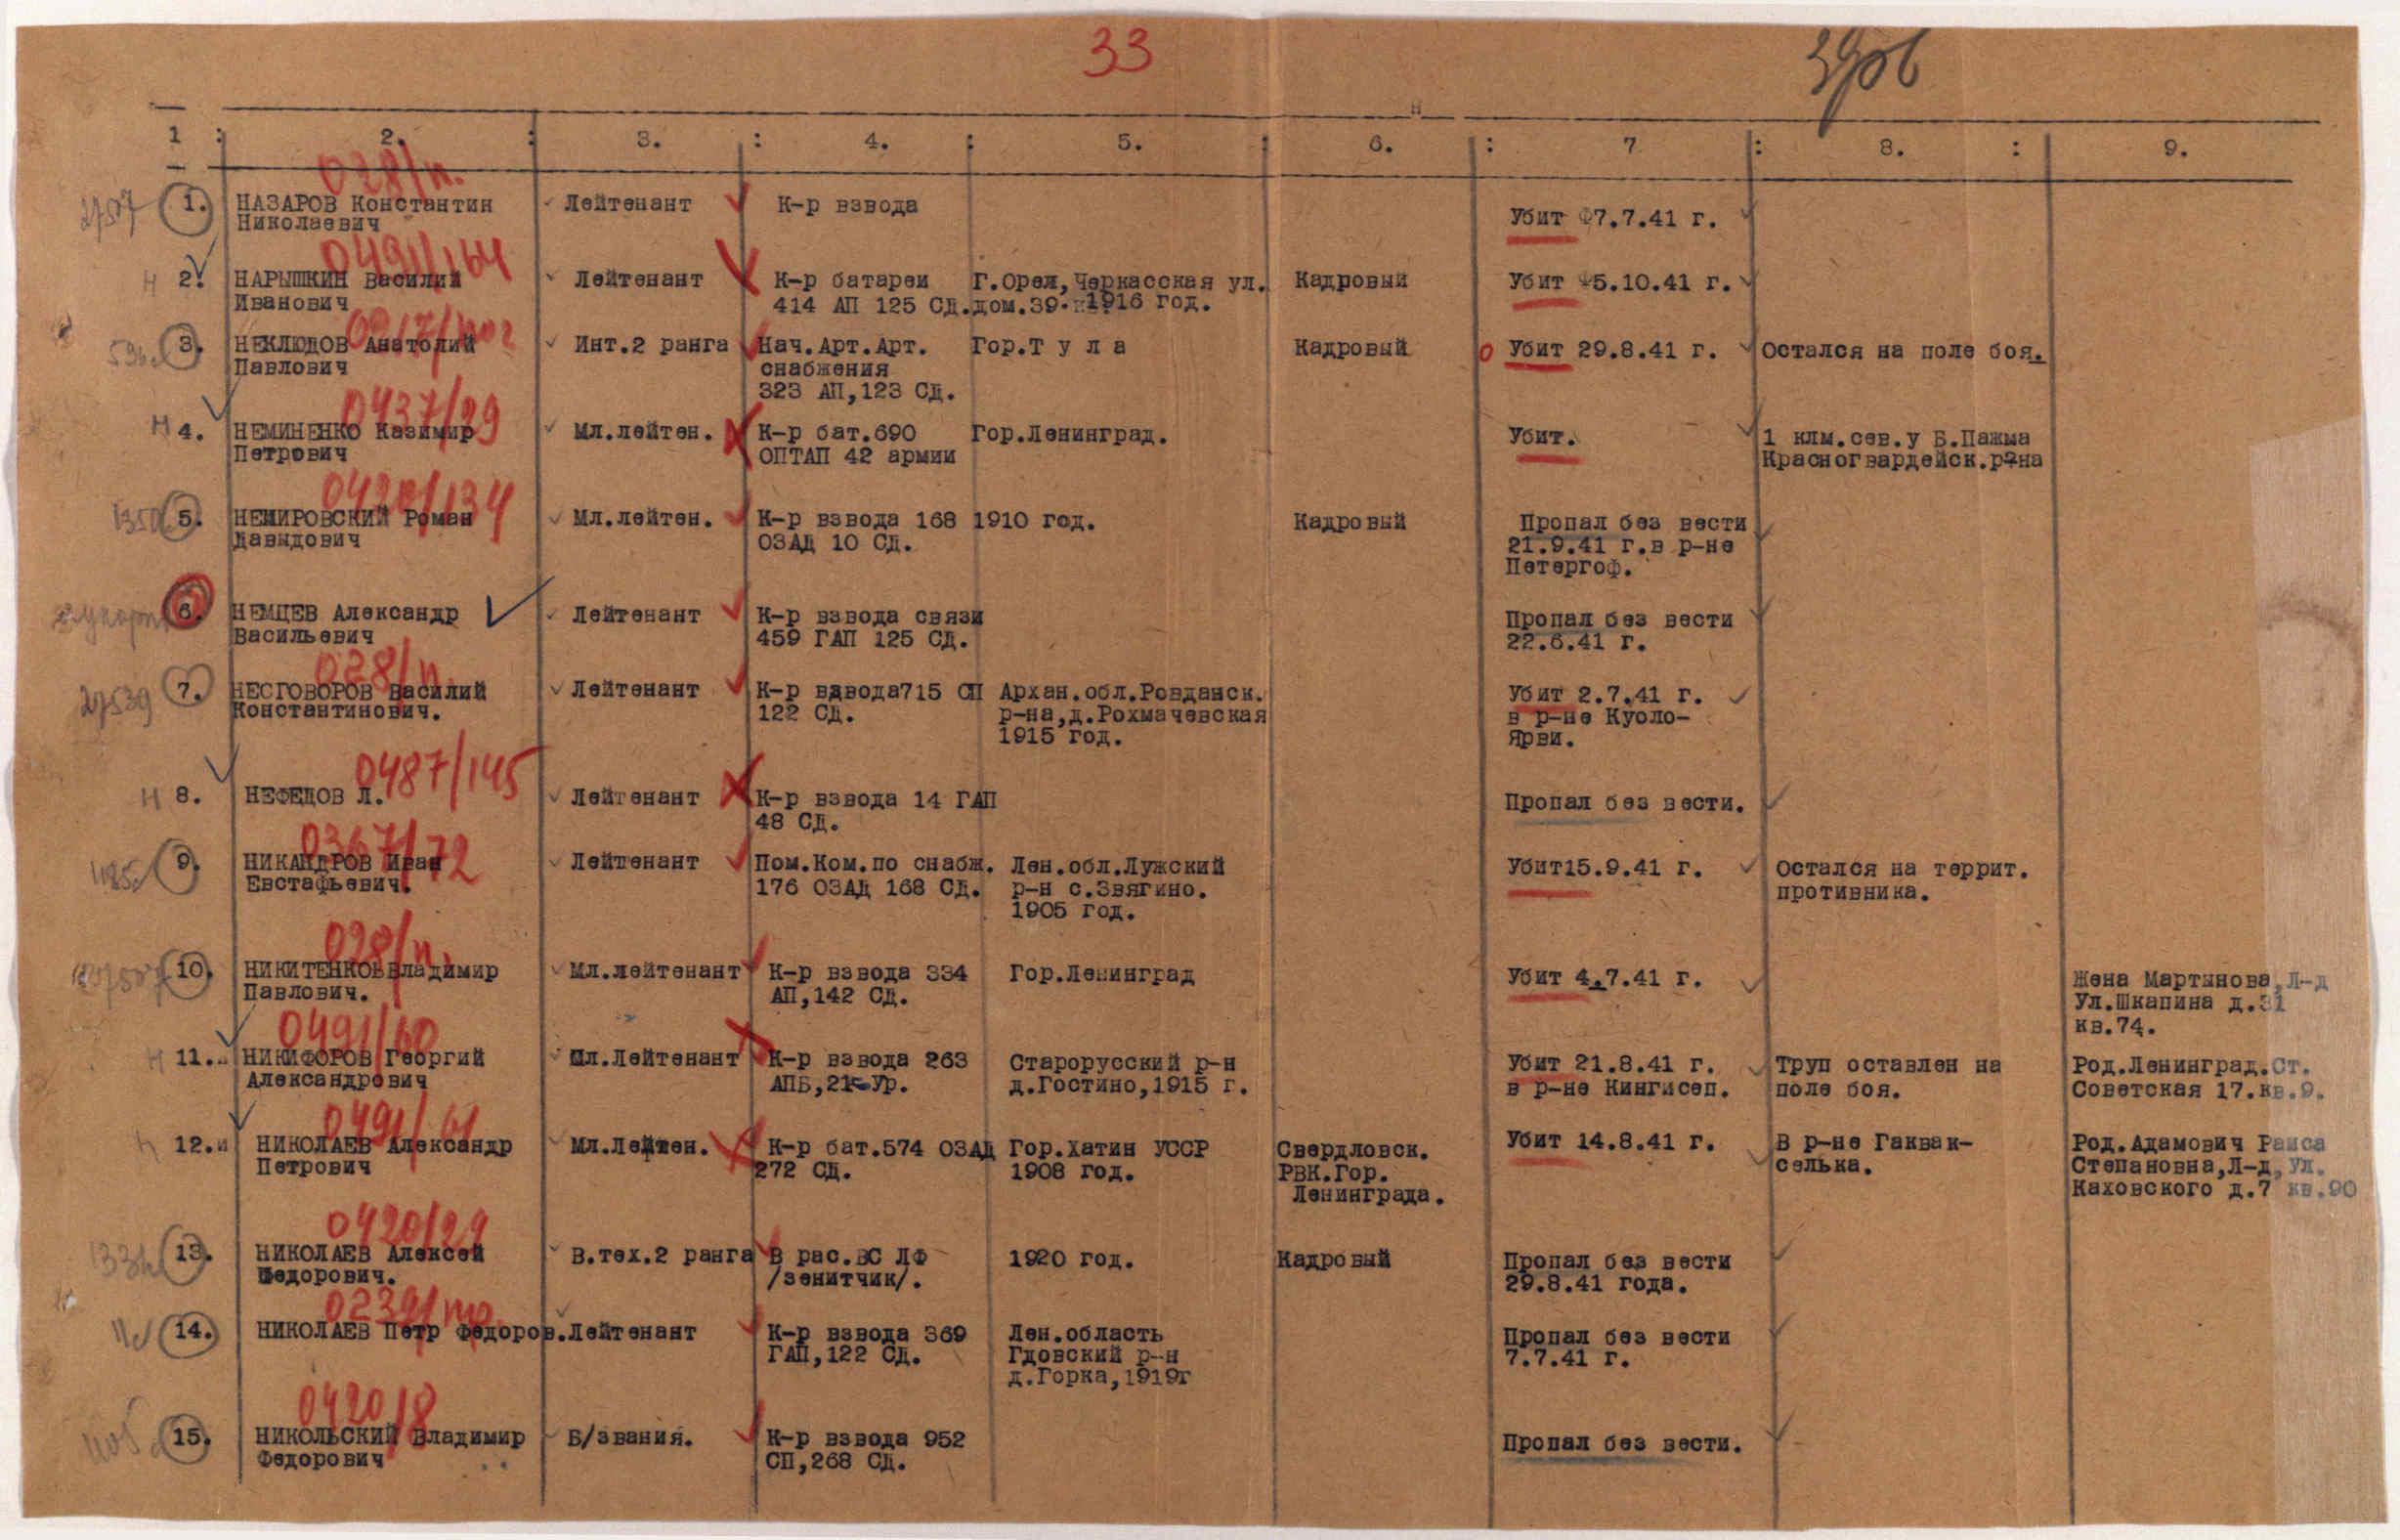 33
1 : 2. : 3. : 4. : 5. : 6. : 7 : 8. : 9.
028/п.
1. НАЗАРОВ Константин Лейтенант К-р взвода Убит 7.7.41 г.
Николаевич
0491/164
Н 2. НАРЫШКИН Василий Лейтенант К-р батареи Г.Орел,Черкасская ул. Кадровый Убит 5.10.41 г.
Иванович 414 АП 125 СД. дом.39. 1916 год.
3. НЕКЛЮДОВ Анатолий Инт.2 ранга Нач.Арт.Арт. Гор.Т у л а Кадровый О Убит 29.8.41 г. Остался на поле боя.
Павлович снабжения
323 АП,123 СД.
0437/29
Н 4. НЕМИНЕНКО Казимир Мл.лейтен. К-р бат.690 Гор.Ленинград. Убит. 1 клм.сев.у Б.Пажма
Петрович ОПТАП 42 армии Красногвардейск.р-на
0420/134
5. НЕМИРОВСКИЙ Роман Мл.лейтен. К-р взвода 168 1910 год. Кадровый Пропал без вести
Давыдович ОЗАД 10 СД. 21.9.41 г.в р-не
Петергоф.
6. НЕМЦЕВ Александр Лейтенант К-р взвода связи Пропал без вести
Васильевич 459 ГАП 125 СД. 22.6.41 г.
028/п.
27539 7. НЕСГОВОРОВ Василий Лейтенант К-р вдвода715 СП Архан.обл.Ровданск. Убит 2.7.41 г.
Константинович. 122 СД. р-на,д.Рохмачевская в р-не Куоло-
1915 год. Ярви.
0487/145
Н 8. НЕФЕДОВ Л. Лейтенант К-р взвода 14 ГАП Пропал без вести.
48 СД.
0367/72
9. НИКАНДРОВ Иван Лейтенант Пом.Ком.по снабж. Лен.обл.Лужский Убит15.9.41 г. Остался на террит.
Евстафьевич. 176 ОЗАД 168 СД. р-н с.Звягино. противника.
1905 год.
028/п.
10. НИКИТЕНКО Владимир Мл.лейтенант К-р взвода 334 Гор.Ленинград Убит 4.7.41 г. Жена Мартынова,Л-д
Павлович. АП,142 СД. Ул.Шкапина д.31
кв.74.
0491/60
Н 11. НИКИФОРОВ Георгий Мл.Лейтенант К-р взвода 263 Старорусский р-н Убит 21.8.41 г. Труп оставлен на Род.Ленинград.Ст.
Александрович АПБ,21 Ур. д.Гостино,1915 г. в р-не Кингисеп. поле боя. Советская 17.кв.9.
0491/61
12.и НИКОЛАЕВ Александр Мл.Лейтен. К-р бат.574 ОЗАД Гор.Хатин УССР Свердловск. Убит 14.8.41 г. В р-не Гаквак- Род.Адамович Раиса
Петрович 272 СД. 1908 год. РВК.Гор. селька. Степановна,Л-д,Ул.
Ленинграда. Каховского д.7 кв.90
0420/29
13. НИКОЛАЕВ Алексей В.тех.2 ранга В рас.ВС ЛФ 1920 год. Кадровый Пропал без вести
Федорович. /зенитчик/. 29.8.41 года.
14. НИКОЛАЕВ Петр Федоров. Лейтенант К-р взвода 369 Лен.область Пропал без вести
ГАП,122 СД. Гдовский р-н 7.7.41 г.
д.Горка,1919г
0420/8
15. НИКОЛЬСКИЙ Владимир Б/звания. К-р взвода 952 Пропал без вести.
Федорович СП,268 СД.